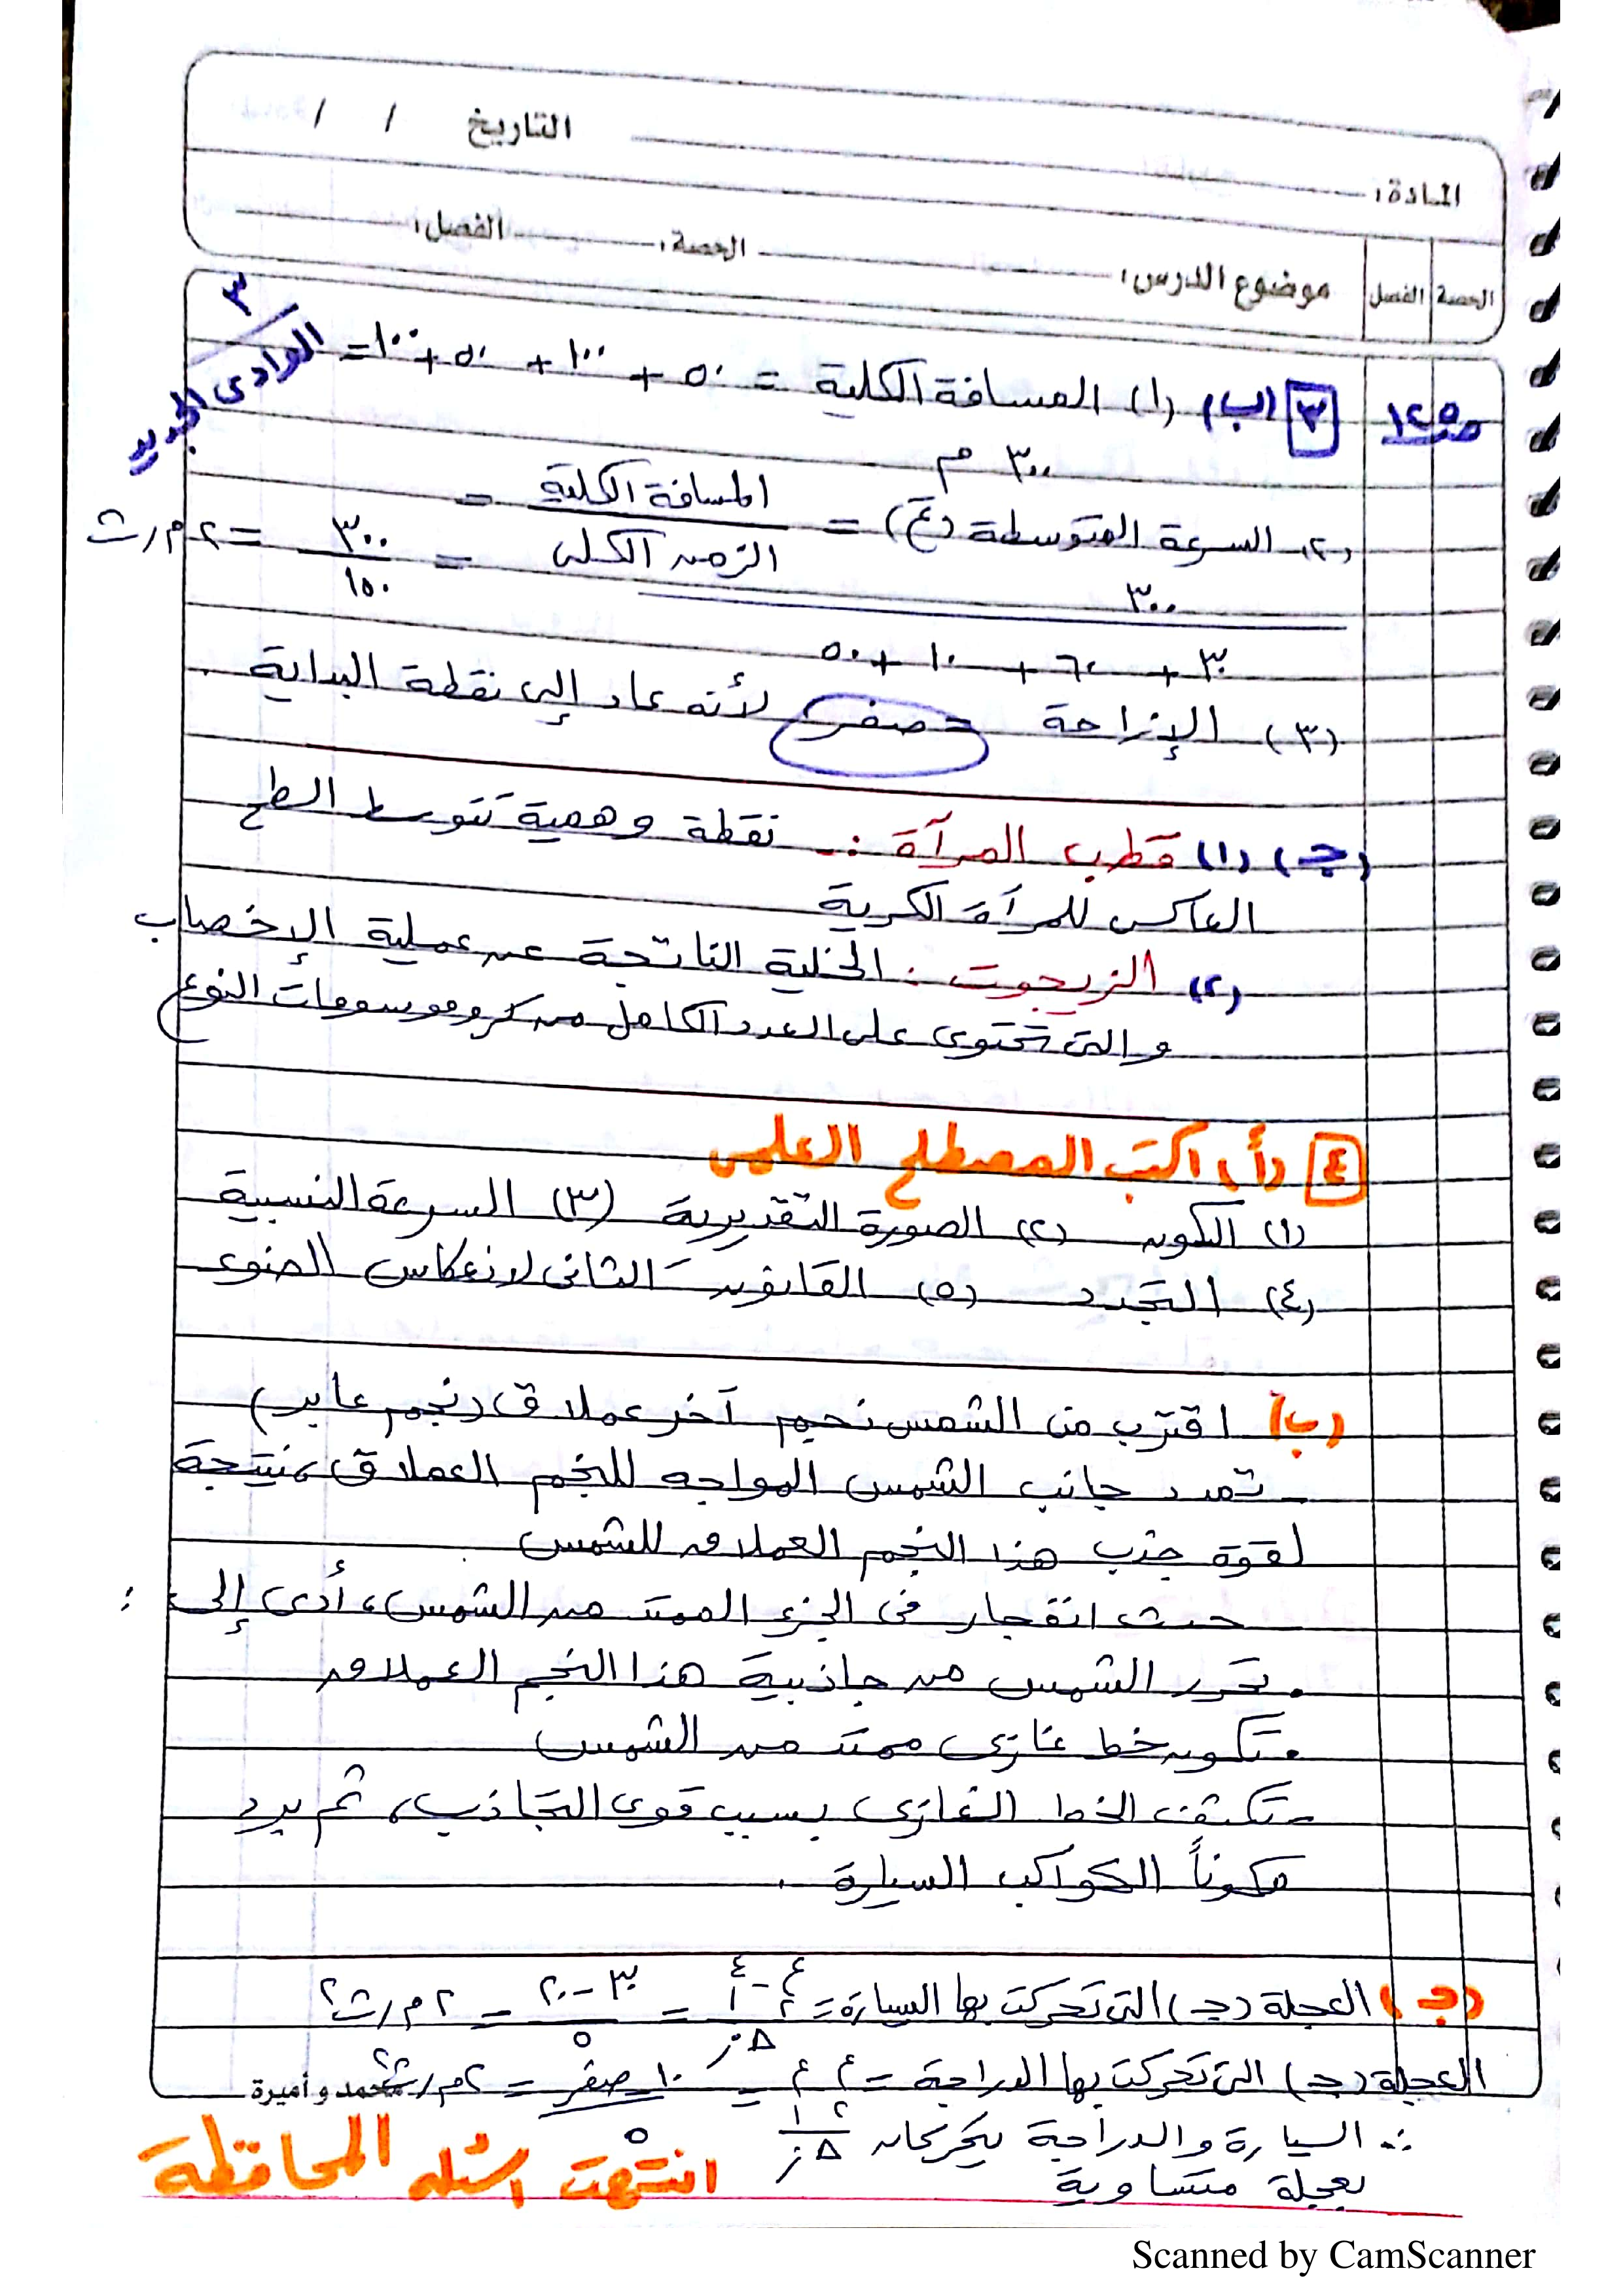 التاريخ / /
المادة:
الحصة الفصل موضوع الدرس: الحصة: الفصل:
٣
الوادى الجديد
ص١٤٥ ٣ (ب) (١) المسافة الكلية = ٥٠ + ١٠٠ + ٥٠ + ١٠٠ =
٣٠٠ م
(٢) السرعة المتوسطة (ع) = المسافة الكلية / الزمن الكلى =
٣٠٠ / ٣٠ + ٦٠ + ١٠ + ٥٠ = ٣٠٠ / ١٥٠ = ٢ م/ث
(٣) الإزاحة = صفر لأنه عاد إلى نقطة البداية .
(جـ) (١) قطب المرآة :- نقطة وهمية تتوسط السطح
العاكس للمرآة الكرية
(٢) الزيجوت : الخلية الناتجة عن عملية الإخصاب
والتى تحتوى على العدد الكامل من كروموسومات النوع
٤ (أ) اكتب المصطلح العلمى
(١) الكون (٢) الصورة التقديرية (٣) السرعة النسبية
(٤) التجدد (٥) القانون الثانى لانعكاس الضوء
(ب) اقترب من الشمس نجم آخر عملاق (نجم عابر)
- تمدد جانب الشمس المواجه للنجم العملاق، نتيجة
لقوة جذب هذا النجم العملاق للشمس
حدث انفجار فى الجزء الممتد من الشمس، أدى إلى :
• تحرر الشمس من جاذبية هذا النجم العملاق
• تكون خط غازى ممتد من الشمس
- تكثف الخط الغازى بسبب قوى التجاذب، ثم برد
مكوناً الكواكب السيارة .
(جـ) العجلة (جـ) التى تحركت بها السيارة = ع٢ - ع١ / Δز = ٣٠ - ٢٠ / ٥ = ٢ م/ث٢
العجلة (جـ) التى تحركت بها الدراجة = ع٢ - ع١ / Δز = ١٠ - صفر / ٥ = ٢ م/ث٢
محمد و أميرة
∴ السيارة والدراجة يتحركان
بعجلة متساوية
انتهت اسئله المحافظة
Scanned by CamScanner